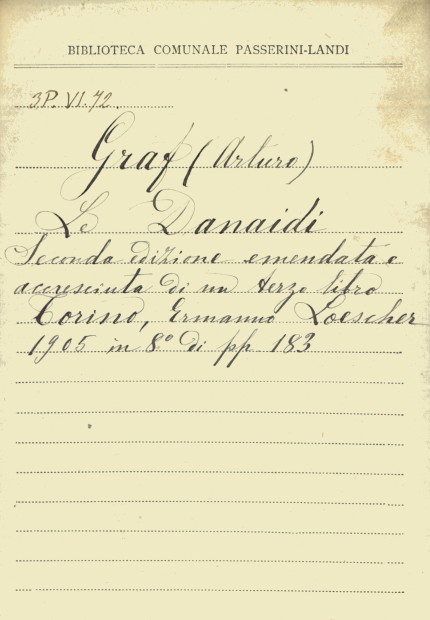 BIBLIOTECA COMUNALE PASSERINI-LANDI
3P. VI. 72.
Graf (Arturo)
Le Danaidi
Seconda edizione emendata e
accresciuta di un terzo libro
Torino, Ermanno Loescher
1905 in 8° di pp 183